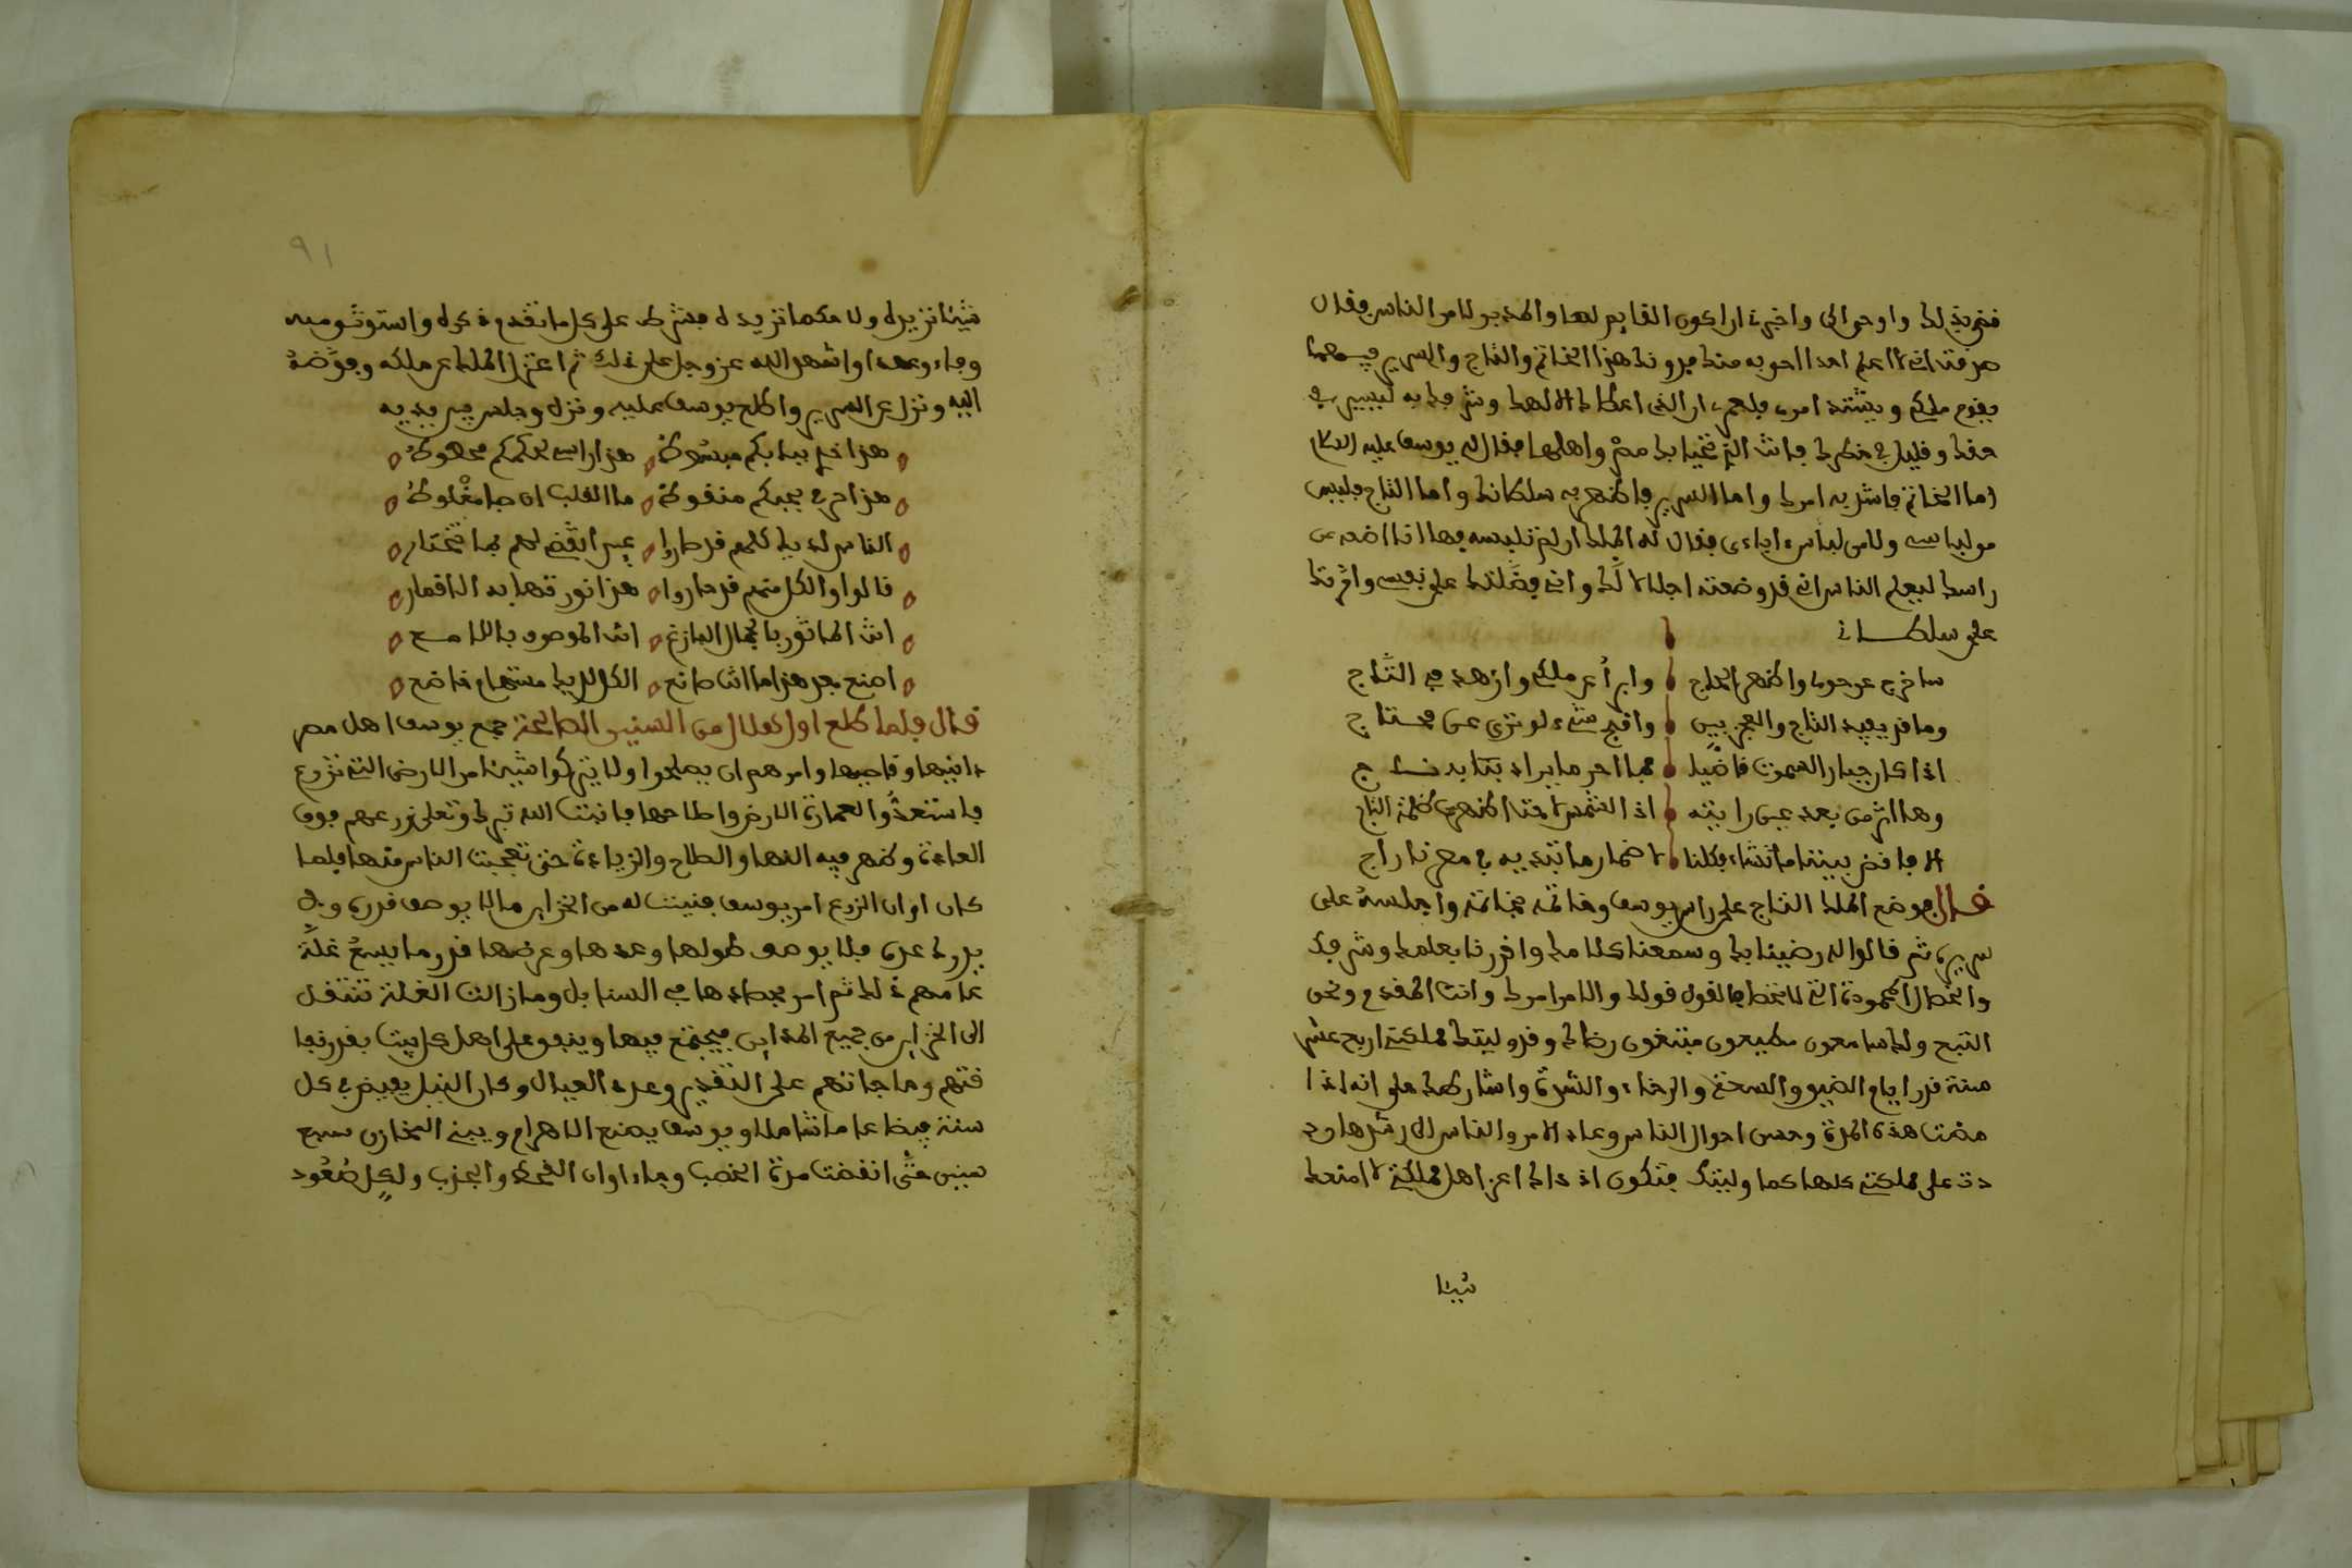 خبر بذلك واوحى الي واخبرني ان اكون القايم لها والمدبر لامر الناس فقال
صدقت اني لا اعلم احدا احق به منك فدونك هذا الخاتم والتاج والسرير
يقوم ملكي ويشتد امره فلعمري ان الذي اعطاك الاهك وشرفك به ليسير في
حقك وقليل في خطرك فانت الذي تحيا بك مصر واهلها فقال له يوسف عليه السلام
اما الخاتم فاشد به امرك واما السرير فاظهر به سلطانك واما التاج فليس
من لباسي ولا من لباس اباءي فقال له الملك ان لم تلبسه فها انا اضعه عن
راسي ليعلم الناس اني قد وضعته اجلالا لك واني فضلتك على نفسي واثرتك
على سلطاني
ساخرج عن حولي واظهر الحاج وابرأ عن ملكي وازهد في التاج
وما قد يفيد التاج والعجز بين واقبح شيء لو ترى عين محتاج
اذا كان جبار السموت قاضيا فما احد ما يراد بتابه ناج
وها اثر من بعد عين رايته اذ الشمس لاحت اظهرت ظلمة الداج
الا فاقض بيننا ما تشاء فكلنا لاضمار ما تبديه في مصرنا راج
قال فوضع الملك التاج على راس يوسف وخاتمه بخاتمه واجلسه على
سريره ثم قالوا له رضينا بك وسمعنا كلامك واقررنا بعلمك وشرفك
والخصال المحمودة التي لا تخطا فالقول قولك والامر امرك وانت المقدم ونحن
التبع ولك سامعون مطيعون مبتغون رضاك وقد وليتك مملكتي اربع عشر
سنة قدر ايام الضيق والسحة والرخاء والشدة واشارطك على انه اذا
مضت هذه المدة وحسن احوال الناس وعاد الامر والناس الى رشدها رد
دت على مملكتي كلها كما وليتك فتكون اذ ذاك اعز اهل مملكتي لا امنعك
شيئا
٩١
شيئا تريده ولا حكما تريد له فشرط على كل ما تقدم ذكره واستوثق منه
وجاء وعهدا واشهد الله عز وجل على ذلك ثم اعتزل الملك عن ملكه وفوضه
اليه ونزل عن السرير واطلع يوسف عليه ونزل وجلس بين يديه
هذا خدي ببابكم مبسوط هذا راسي لحكمكم محطوط
هذا حرفي بحبكم منقوط ما القلب ان جا مغلوط
الناس لديك كلهم قد طاروا عين القضى لهم بما تختار
قالوا والكل منهم قد حاروا هذا نور تهابه الاقمار
انت الماثور بالجمال البازغ انت الموصوف باللامع
اصنع بعد هذا ما انت صانع الكل لديك مستهام خاضع
قال فلما طلع اول هلال من السنين الصالحة جمع يوسف اهل مصر
دانيها وقاصيها وامرهم ان يصلحوا ولا يتركوا شيئا من الارض التي تزرع
فاستعدوا لعمارة الارض واصلاحها فانبت الله تبرك وتعلى زرعهم فوق
العادة وظهر فيه النما والصلاح والزيادة حتى تعجبت الناس منها فلما
كان اوان الزرع امر يوسف فبنيت له من الخزاين ما لا يوصف قدره ولا
يدرك عده فلا يوصف طولها وعددها وعرضها قدر ما يسع غلة
عامهم ذلك ثم امر بحصادها في السنابل وما زالت الغلة تنتقل
الى الخزاين من جميع المداين فيجتمع فيها وينفق على اهل كل بيت بقدر نفا
قتهم وحاجاتهم على التقدير وعدد العيال وكان النيل يفيض في كل
سنة فيضا عاما شاملا ويوسف يصنع الاهرام ويبني المخازن سبع
سنين حتى انقضت مدة الخصب وجاء اوان القحط والجدب ولكل صعود